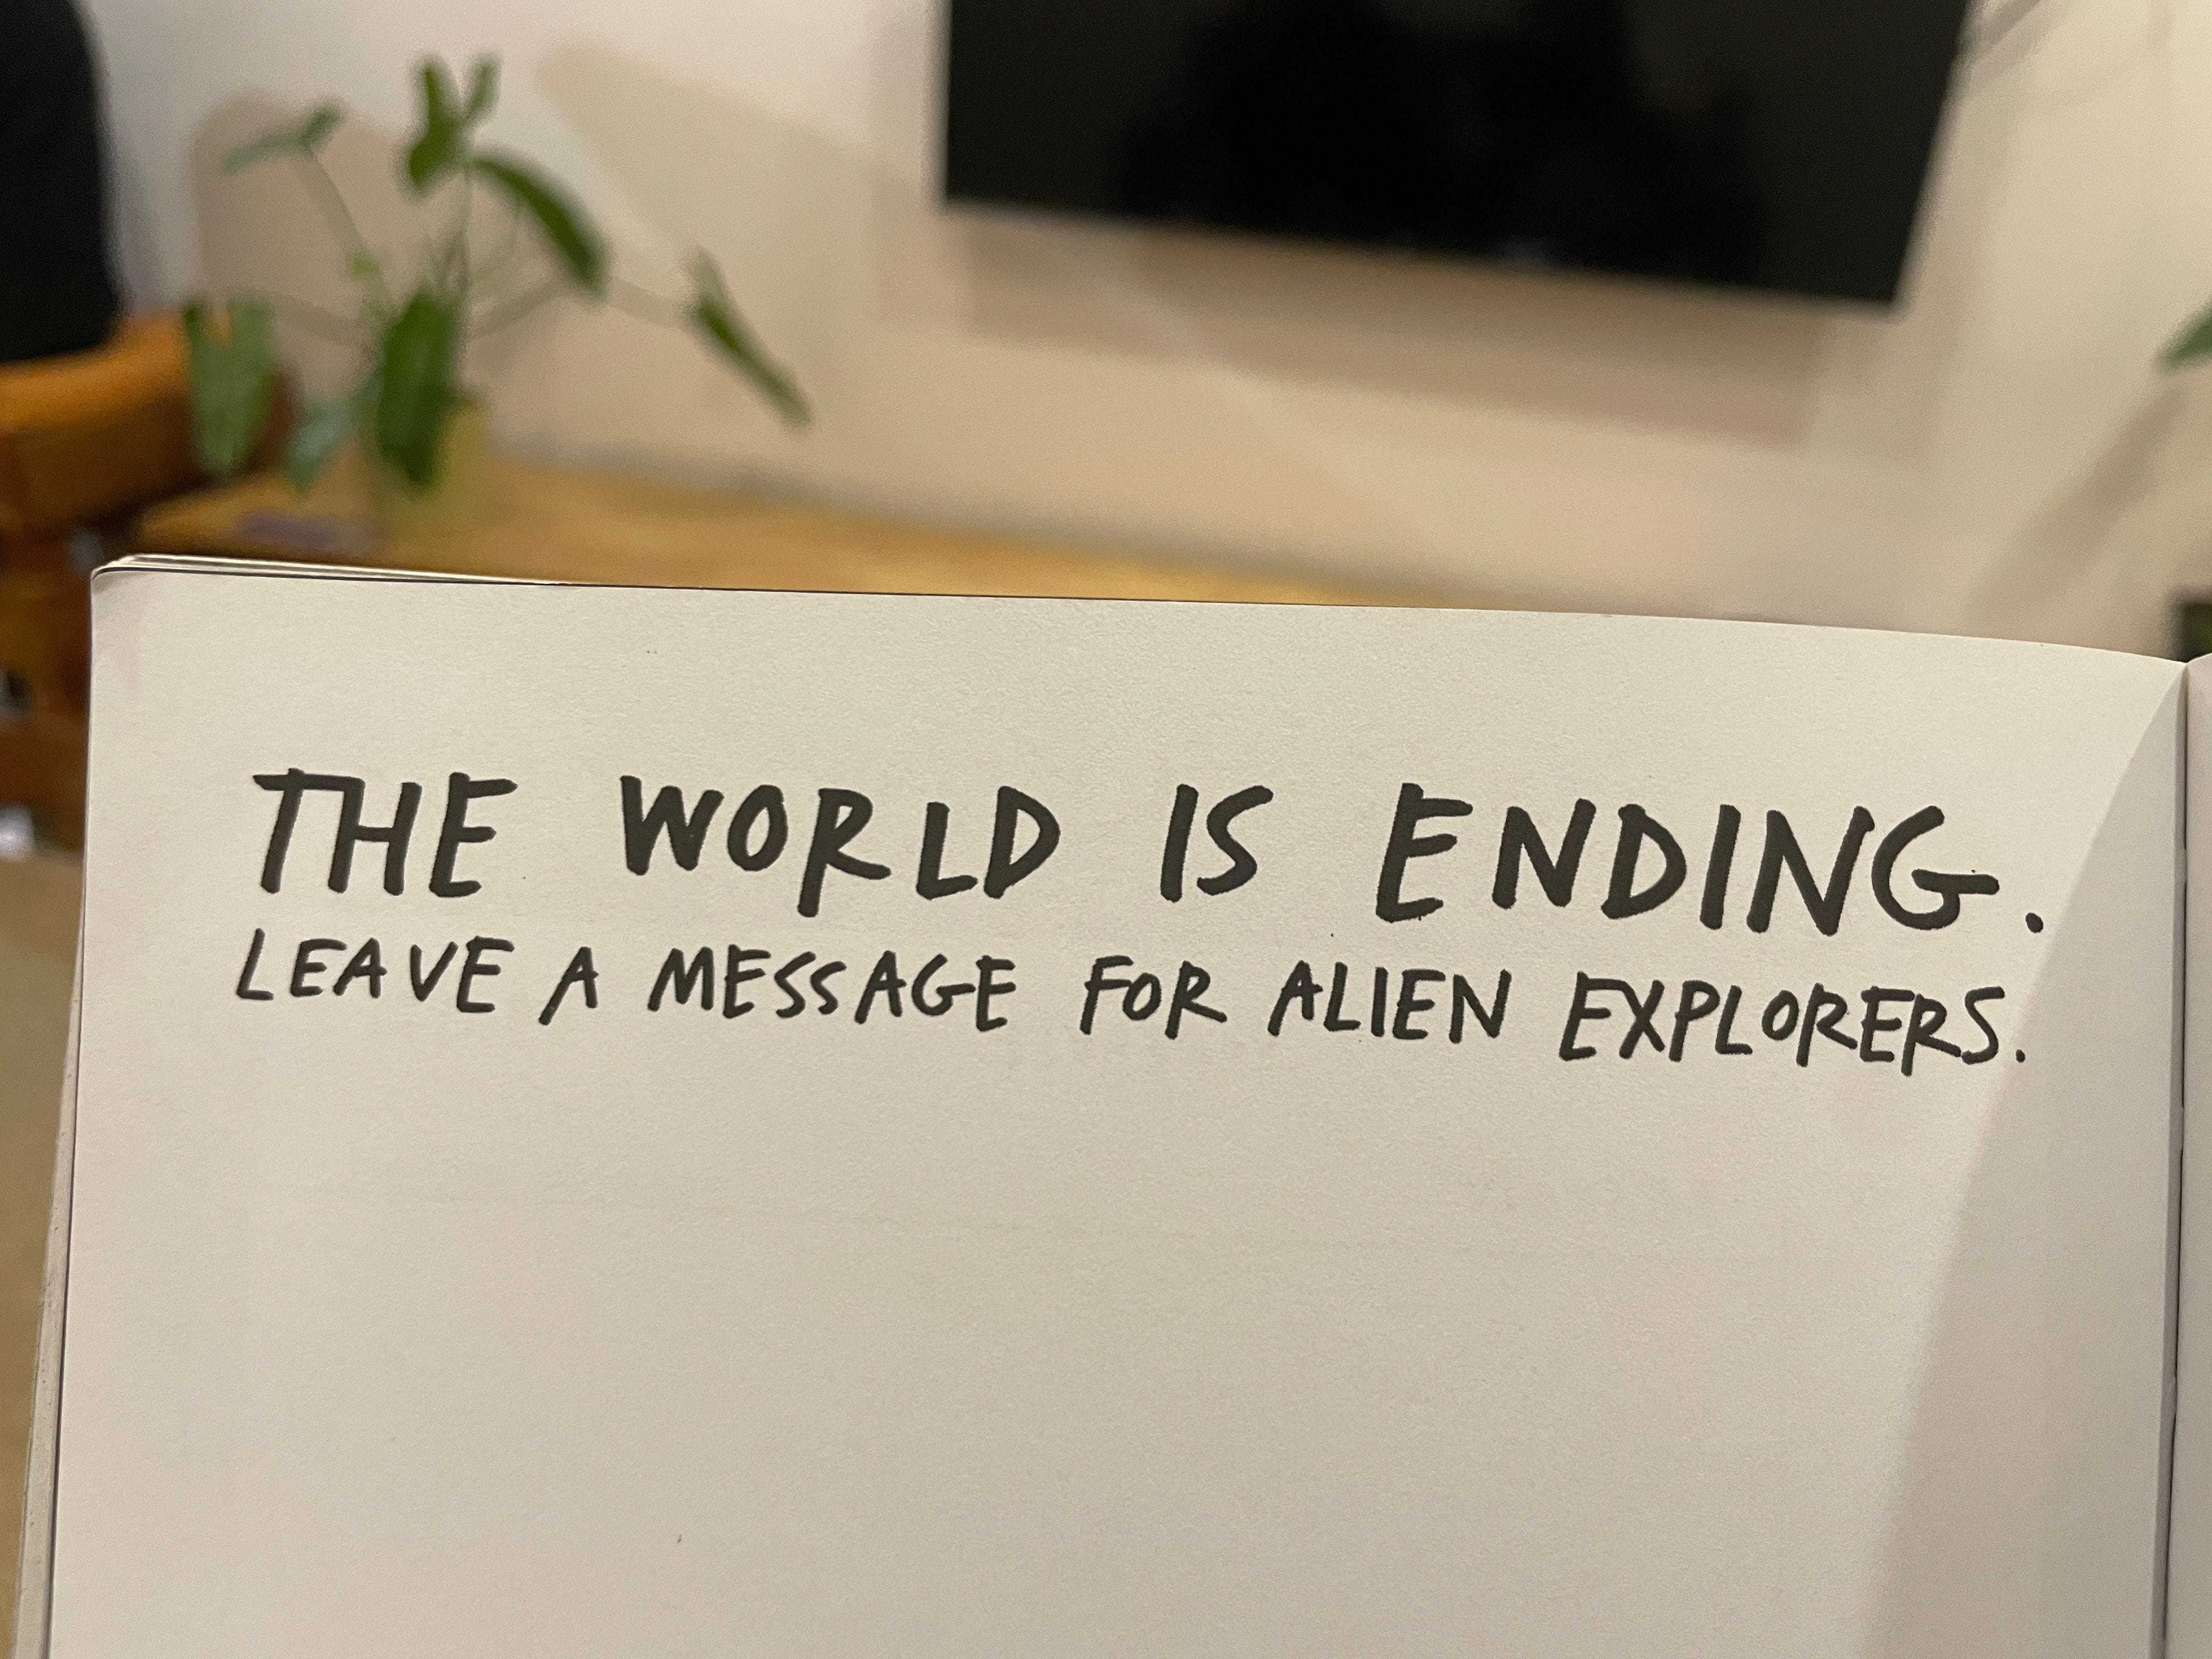 THE WORLD IS ENDING.
LEAVE A MESSAGE FOR ALIEN EXPLORERS.